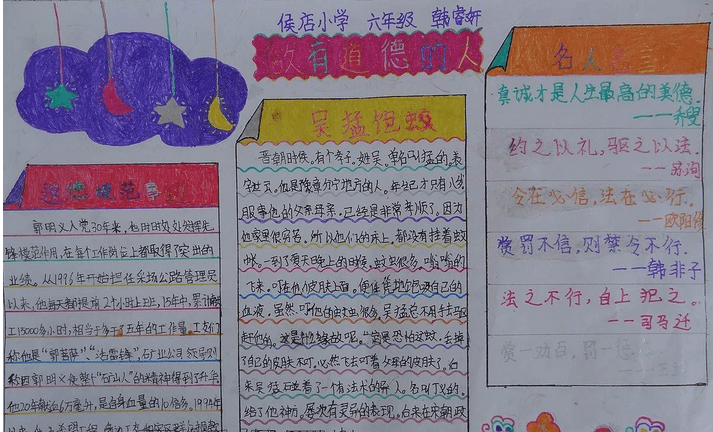 侯店小学 六年级 韩睿妍
做有道德的人
道德模范事迹
郭明义入党30年来,他时时处处发挥先
锋模范作用,在每个工作岗位上都取得了突出的
业绩。从1996年开始担任采场公路管理员
以来,他每天都提前2个小时上班,15年中,累计献
工15000多小时,相当于多干了五年的工作量。工友们
称他是“郭菩萨”、“活雷锋”,矿业公司领导则
称因郭明义使整个“矿山人”的精神得到了升华
他20年献血6万毫升,是自身血量的10倍多。1994年
吴猛饱蚊
晋朝时候,有个孝子,姓吴。单名叫猛的,表
字世云。他是豫章分宁地方的人。年纪才只有八岁
服事他的父亲母亲,已经是非常孝顺了。因为
他家里很穷苦,所以他们的床上,都没有挂着蚊
帐。一到了夏天晚上的时候,蚊虫很多,嗡嗡的
飞来,叮在他们皮肤上面,
血液。虽然叮他的蚊虫很多,吴猛总不用手去驱
赶他的。这是什么缘故呢。因为恐怕这蚊,去掉
了自己的皮肤不叮,必然飞去叮着父母的皮肤了。后
来吴猛碰着了一个有法术的异人。名叫丁义的。
给了他神方。屡次有灵异的表现。后来在宋朝政
名人名言
真诚才是人生最高的美德。
——乔叟
约之以礼,驱之以法。
——苏洵
令在必信,法在必行。
——欧阳修
赏罚不信,则禁令不行。
——韩非子
法之不行,自上犯之。
——司马迁
赏一劝百,罚一